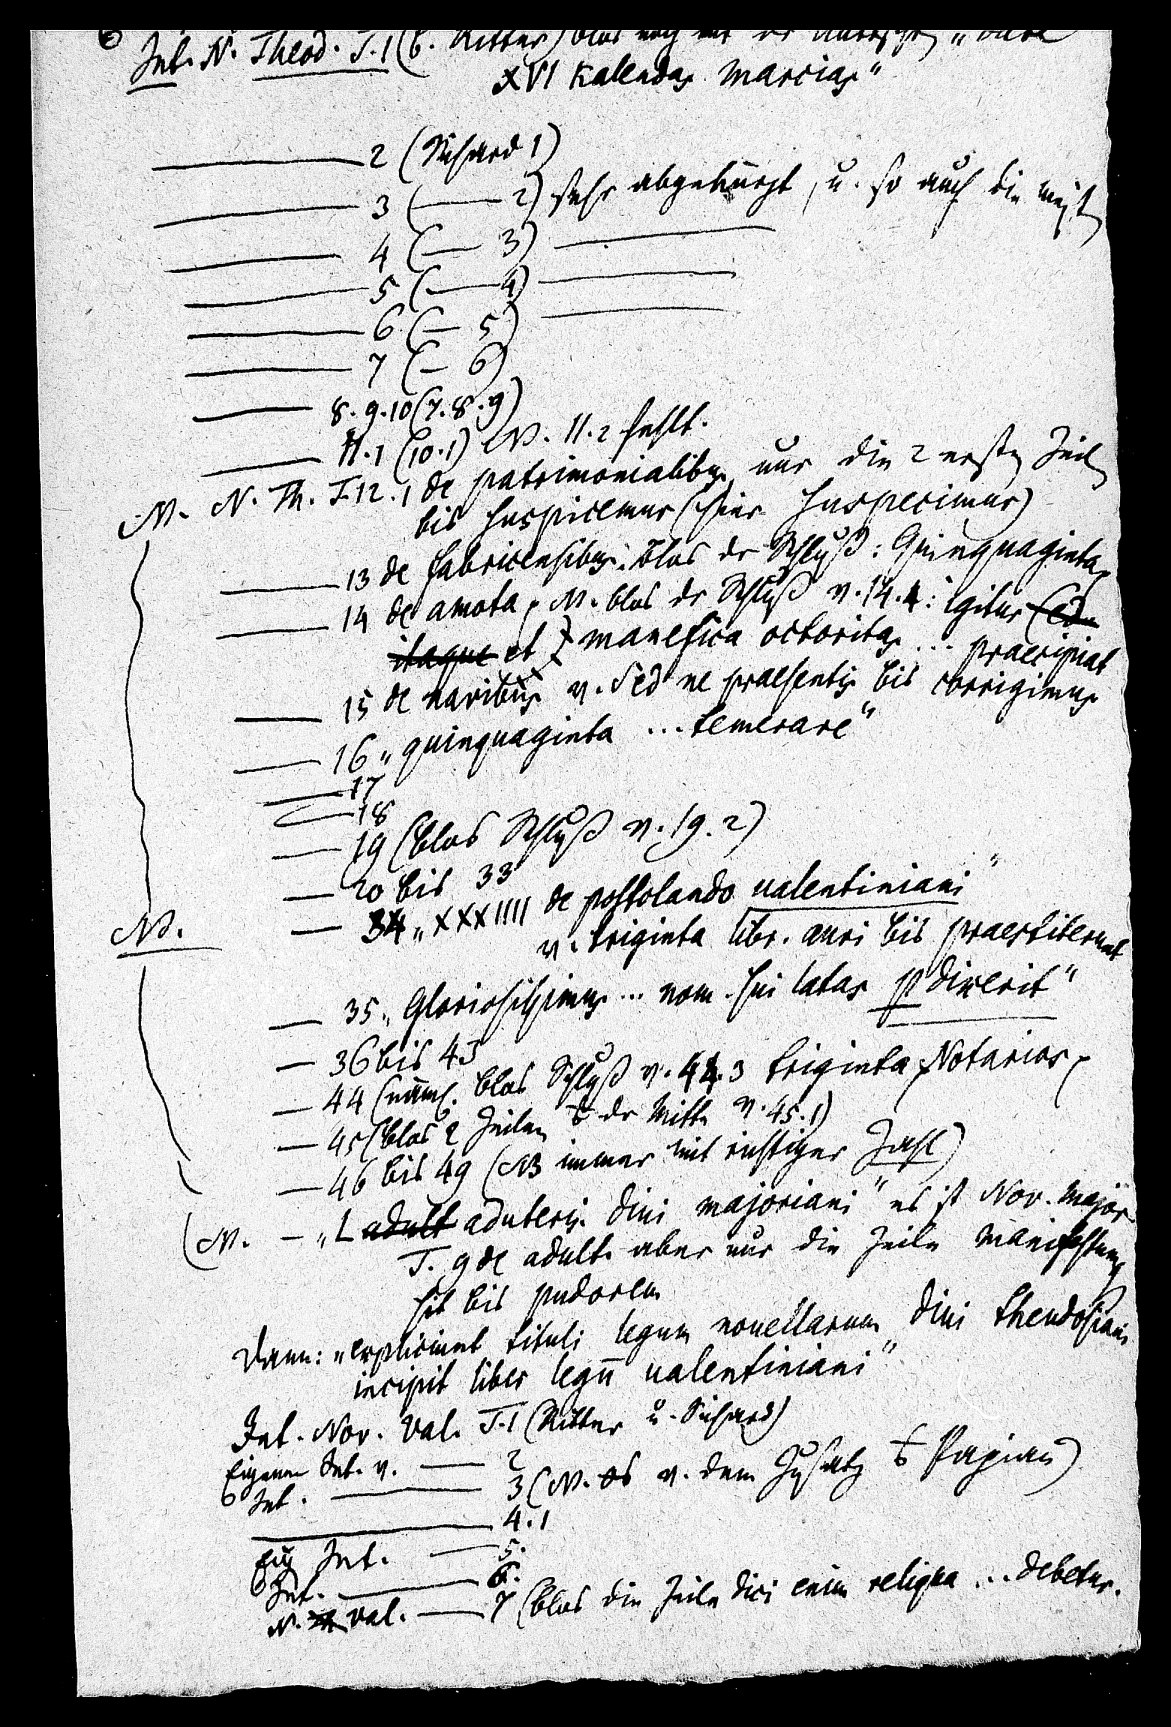 Int. N. Theod. T. 1 (b. Ritter) blos noch mit der „Data
XVI Kalendas Marcias“
——— 2 (Sichard 1)
——— 3 (—— 2) sehr abgekürzt, u. so auch die meist
——— 4 (—— 3) ———
——— 5 (—— 4) ———
——— 6 (— 5) ———
——— 7 (— 6)
——— 8. 9. 10 (7. 8. 9)
——— 11. 1 (10. 1) N. 11. 2 fehlt.
N. N. Th. T. 12. 1 de patrimonialibus nur die 2 ersten Zeil
bis huspicemur (hier huspecimur)
——— 13 de fabricensibus. blos der Schluß: Quinquaginta
——— 14 de amota, N. blos der Schluß v. 14. 4: igitur
itaque et manefica octoritas ... praecipiat
——— 15 de navibus v. Sed ne praesentis bis corrigimus
——— 16 „quinquaginta ... temerare“
——— 17
——— 18
—— 19 (blos Schluß v. 19. 2)
— 20 bis 33
N. — 34 „XXXIIII de postolando valentiniani“
v. triginta libr. auri bis praestiterunt
— 35 „Gloriosissimus ... nom. sui latas p diverit“
— 36 bis 43
— 44 (nämlich blos Schluß v. 44. 3 triginta Notarios)
— 45 (blos 2 Zeilen der Mitte v. 45. 1)
— 46 bis 49 (NB immer mit richtiger Zahl)
(N. — „L adult aduteris. Divi majoriani“ es ist Nov. Major
T. 9 de adult. aber nur die Zeile manifestum
sit bis pudorem
Dann: „expliciunt tituli legum novellarum Divi theudosiani
incipit liber legū valentiniani“
Int. Nov. Val. T. 1 (Ritter u. Sichard)
Eigene Int. v. —— 2
Int. ——— 3 (N. ob v. dem Zusatz b Papian)
——— 4. 1
Eig Int. —— 5.
Int. ——— 6.
N. Val. —— 7 (blos die Zeile dici enim reliqua ... debetur.